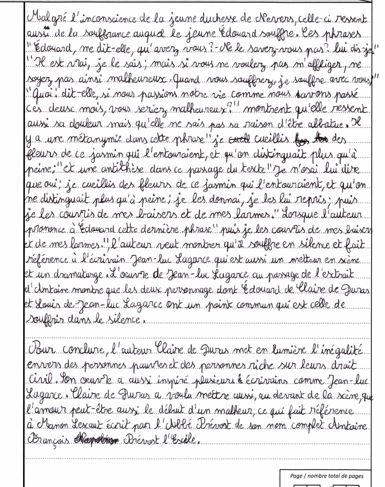 Malgré l'inconscience de la jeune duchesse de Nevers, celle-ci ressent
aussi de la souffrance auquel le jeune Édouard souffre. Les phrases
"Édouard, me dit-elle, qu'avez vous? - Ne le savez-vous pas? lui dis-je"
"Il est vrai, je le sais; mais si vous ne voulez pas m'affliger, ne
soyez pas ainsi malheureux. Quand vous souffrez, je souffre avec vous"
"Quoi! dit-elle, si nous passions notre vie comme nous avons passé
ces deux mois, vous seriez malheureux?" montrent qu'elle ressent
aussi sa douleur mais qu'elle ne sais pas sa raison d'être abbatue. Il
y a une métanymie dans cette phrase "je cueillis des
fleurs de ce jasmin qui l'entouraient, et qu'on distinguait plus qu'à
peine;" et une antithèse dans ce passage du texte "Je n'osai lui dire
que oui; je cueillis des fleurs de ce jasmin qui l'entouraient, et qu'on
ne distinguait plus qu'à peine; je les donnai, je les lui repris; puis
je les couvris de mes baisers et de mes larmes." Lorsque l'auteur
prononce à Édouard cette dernière phrase "puis je les couvris de mes baisers
et de mes larmes.", l'auteur veut montrer qu'il souffre en silence et fait
référence à l'écrivain Jean-Luc Lagarce qui est aussi un metteur en scène
et un dramaturge. L'œuvre de Jean-Luc Lagarce au passage de l'extrait
d'Antoine montre que les deux personnage dont Édouard de Claire de Duras
et Louis de Jean-Luc Lagarce ont un point commun qui est celle de
souffrir dans le silence.
Pour conclure, l'auteur Claire de Duras met en lumière l'inégalité
envers des personnes pauvres et des personnes riche sur leurs droit
civil. Son œuvre a aussi inspiré plusieurs écrivains comme Jean-Luc
Lagarce. Claire de Duras a voulu mettre aussi, au devant de la scène, que
l'amour peut-être aussi le début d'un malheur, ce qui fait référence
à Manon Lescaut écrit par l'Abbé Prévost de son nom complet Antoine
François Prévost
Page / nombre total de pages